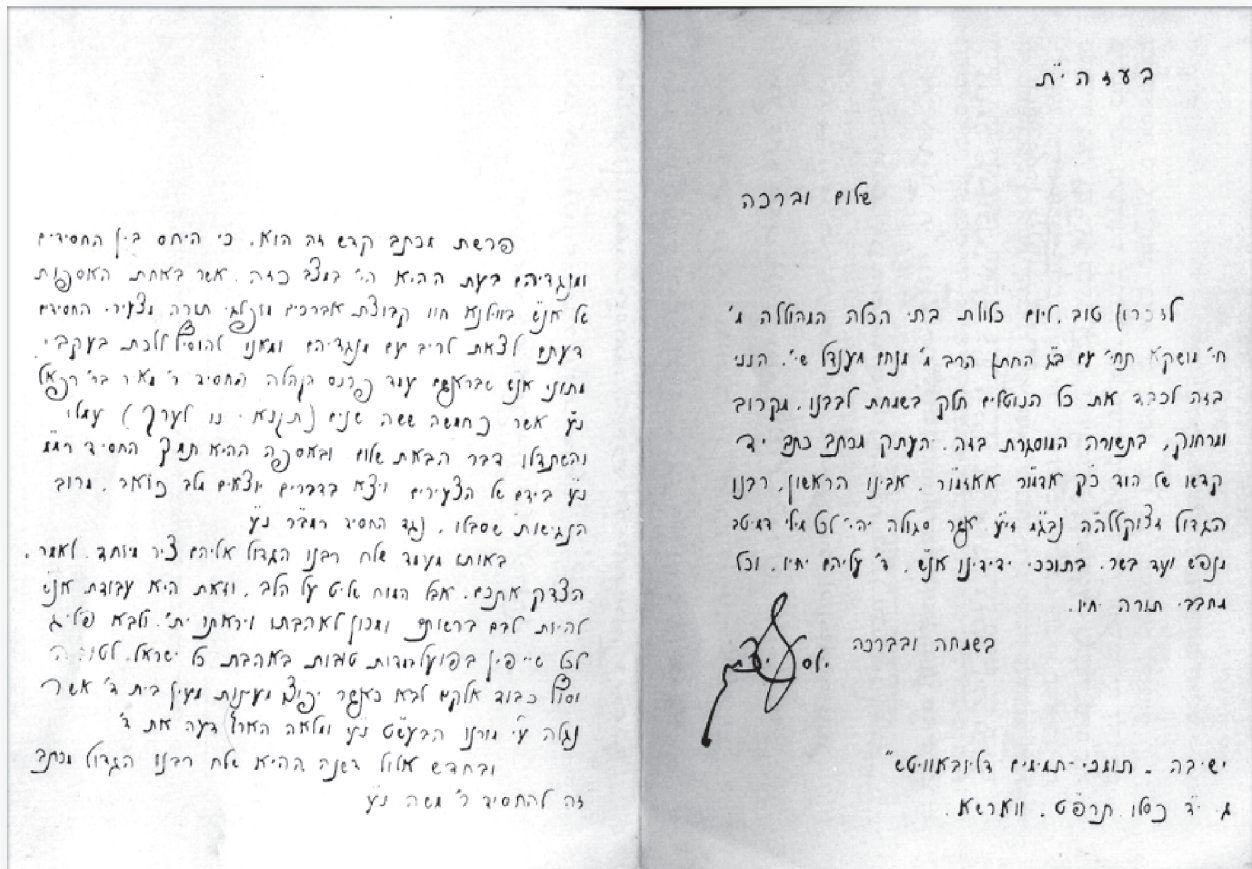 בעזהי"ת
שלום וברכה
לזכרון טוב, ליום כלולת בתי הכלה המהוללה מ'
חי' מושקא תחי' עם ב"ג החתן הרב מ' מנחם מענדל שי', הנני
בזה לכבד את כל הנוטלים חלק בשמחת לבבנו, מקרוב
ומרחוק, בתשורה המוסגרת בזה, העתק מכתב כתב יד
קדשו של הוד כ"ק אדמו"ר אאזמו"ר, אבינו הראשון, רבנו
הגדול מצוקללה"ה נבג"מ זי"ע אשר סגולה יהי' לכל מילי דמיטב
מנפש ועד בשר, בתוככי ידידינו אנ"ש, ד' עליהם יחיו, וכל
מחבבי תורה יחיו.
בשמחה ובברכה
ישיבה "תומכי-תמימים דליובאוויטש"
ג. י"ד כסלו תרפ"ט. ווארשא.
פרשת מכתב קדש זה הוא, כי היחס בין החסידים
ומנגדיהם בעת ההיא הי' במצב כזה, אשר באחת האספות
של אנ"ש בווילנא חוו קבוצת אברכים מופלגי תורה מצעירי החסידים
דעתם לצאת לריב עם מנגדיהם ומאנו להוסיף ללכת בעקבי
מתוני אנ"ש שבראשם עמד פרנס הקהלה החסיד ר' מאיר בר' רפאל
נ"ע אשר כחמשה ששה שנים (תקנ"א - נו לערך) עמלו
והשתדלו דבר הבאת שלום ובאספה ההיא תמך החסיד רמ"מ
נ"ע בידם של הצעירים ויצא בדברים יוצאים מלב כואב, מרוב
הנגישות שסבלו, נגד החסיד רמב"ר נ"ע
באותו מעמד שלח רבנו הגדול אליהם ציר מיוחד, לאמר,
הצדק אתכם, אבל המוח שליט על הלב, וזאת היא עבודת אנ"ש
להיות לבם ברשותם ומכון לאהבתו ויראתו ית', ולבא פליג
לכל שייפין בפועל במדות טובות באהבת כל ישראל, לטובה
וסוף כבוד אלקים לבא כאשר יפוצו מעינות מעין בית ד' אשר
נגלה ע"י מורנו הבעש"ט נ"ע ומלאה הארץ דעה את ד'
ובחדש אלול דשנה ההיא שלח רבנו הגדול מכתב
זה להחסיד ר' משה נ"ע